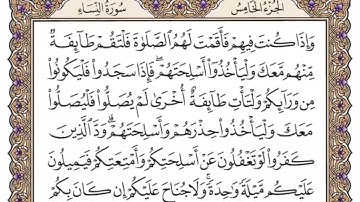 الجزء الخامس سورة النساء
وَإِذَا كُنتَ فِيهِمْ فَأَقَمْتَ لَهُمُ ٱلصَّلَوٰةَ فَلْتَقُمْ طَآئِفَةٌ
مِّنْهُم مَّعَكَ وَلْيَأْخُذُوٓا۟ أَسْلِحَتَهُمْ ۖ فَإِذَا سَجَدُوا۟ فَلْيَكُونُوا۟
مِن وَرَآئِكُمْ وَلْتَأْتِ طَآئِفَةٌ أُخْرَىٰ لَمْ يُصَلُّوا۟ فَلْيُصَلُّوا۟
مَعَكَ وَلْيَأْخُذُوا۟ حِذْرَهُمْ وَأَسْلِحَتَهُمْ ۗ وَدَّ ٱلَّذِينَ
كَفَرُوا۟ لَوْ تَغْفُلُونَ عَنْ أَسْلِحَتِكُمْ وَأَمْتِعَتِكُمْ فَيَمِيلُونَ
عَلَيْكُم مَّيْلَةً وَٰحِدَةً ۚ وَلَا جُنَاحَ عَلَيْكُمْ إِن كَانَ بِكُمْ